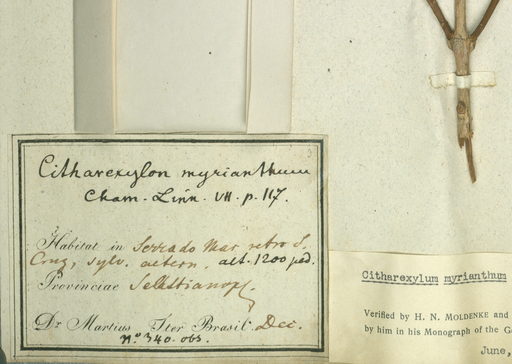 Citharexylon myrianthum
Cham. Linn. VII. p. 117.
Habitat in Serra do Mar retro S.
Cruz, sylv. aetern. alt. 1200 ped.
Provinciae Sebastianop.
Dr. Martius Iter Brasil. Dec.
No. 340. obs.
Citharexylum myrianthum
Verified by H. N. MOLDENKE and
by him in his Monograph of the G
June,